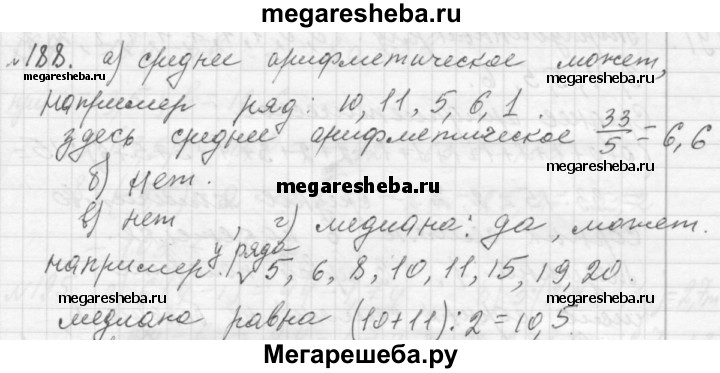 megaresheba.ru
№188. а) среднее арифметическое может,
megaresheba.ru
megaresheba.ru
например ряд: 10, 11, 5, 6, 1.
здесь среднее арифметическое 33/5 = 6,6
б) нет.
megaresheba.ru
в) нет, г) медиана: да, может.
например у ряда 5, 6, 8, 10, 11, 15, 19, 20.
megaresheba.ru
megaresheba.ru
медиана равна (10+11):2=10,5
Мегарешеба.ру